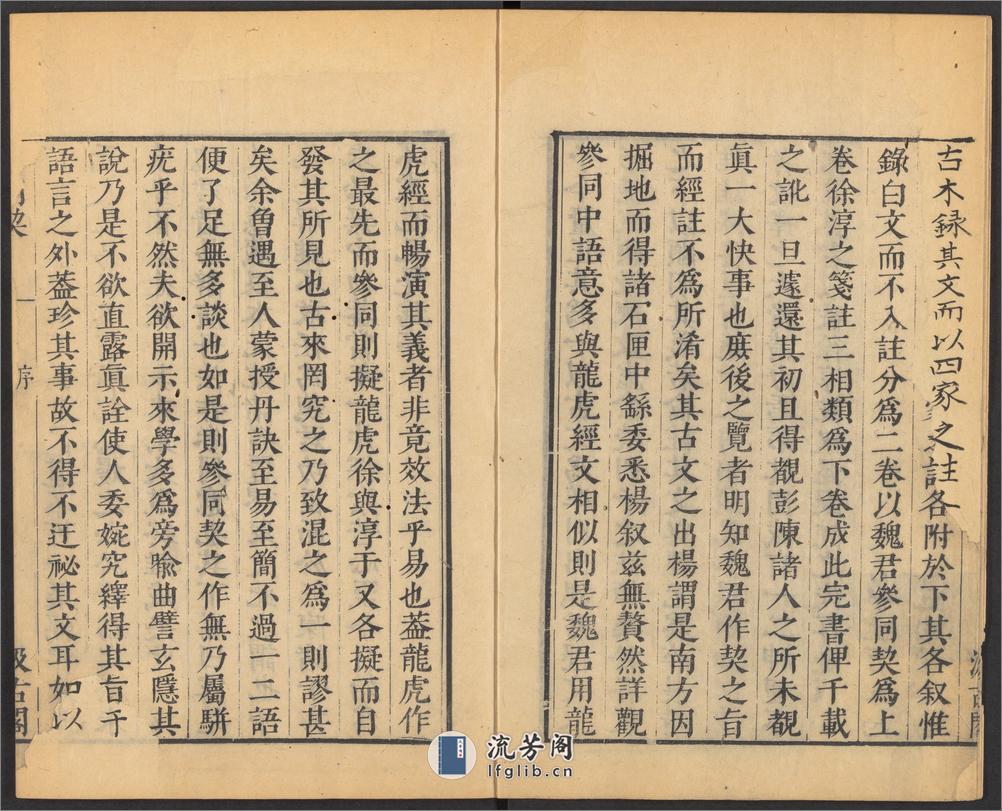 古本録其文而以四家之註各附於下其各叙惟
錄白文而不入註分為二卷以魏君參同契為上
卷徐淳之箋註三相類為下卷成此完書俾千載
之訛一旦遽還其初且得覩彭陳諸人之所未覩
眞一大快事也庻後之覽者明知魏君作契之旨
而經註不為所淆矣其古文之出楊謂是南方因
掘地而得諸石匣中繇委悉楊叙兹無贅然詳觀
參同中語意多與龍虎經文相似則是魏君用龍
虎經而暢演其義者非竟效法乎易也葢龍虎作
之最先而參同則擬龍虎徐與淳于又各擬而自
發其所見也古來罔究之乃致混之為一則謬甚
矣余曾遇至人蒙授丹訣至易至簡不過一二語
便了足無多談也如是則參同契之作無乃屬駢
疣乎不然夫欲開示來學多為旁喻曲譬玄隱其
說乃是不欲直露眞詮使人委婉究繹得其旨千
語言之外葢珍其事故不得不迂祕其文耳如以
一 序
汲古閣
流芳阁
lfglib.cn